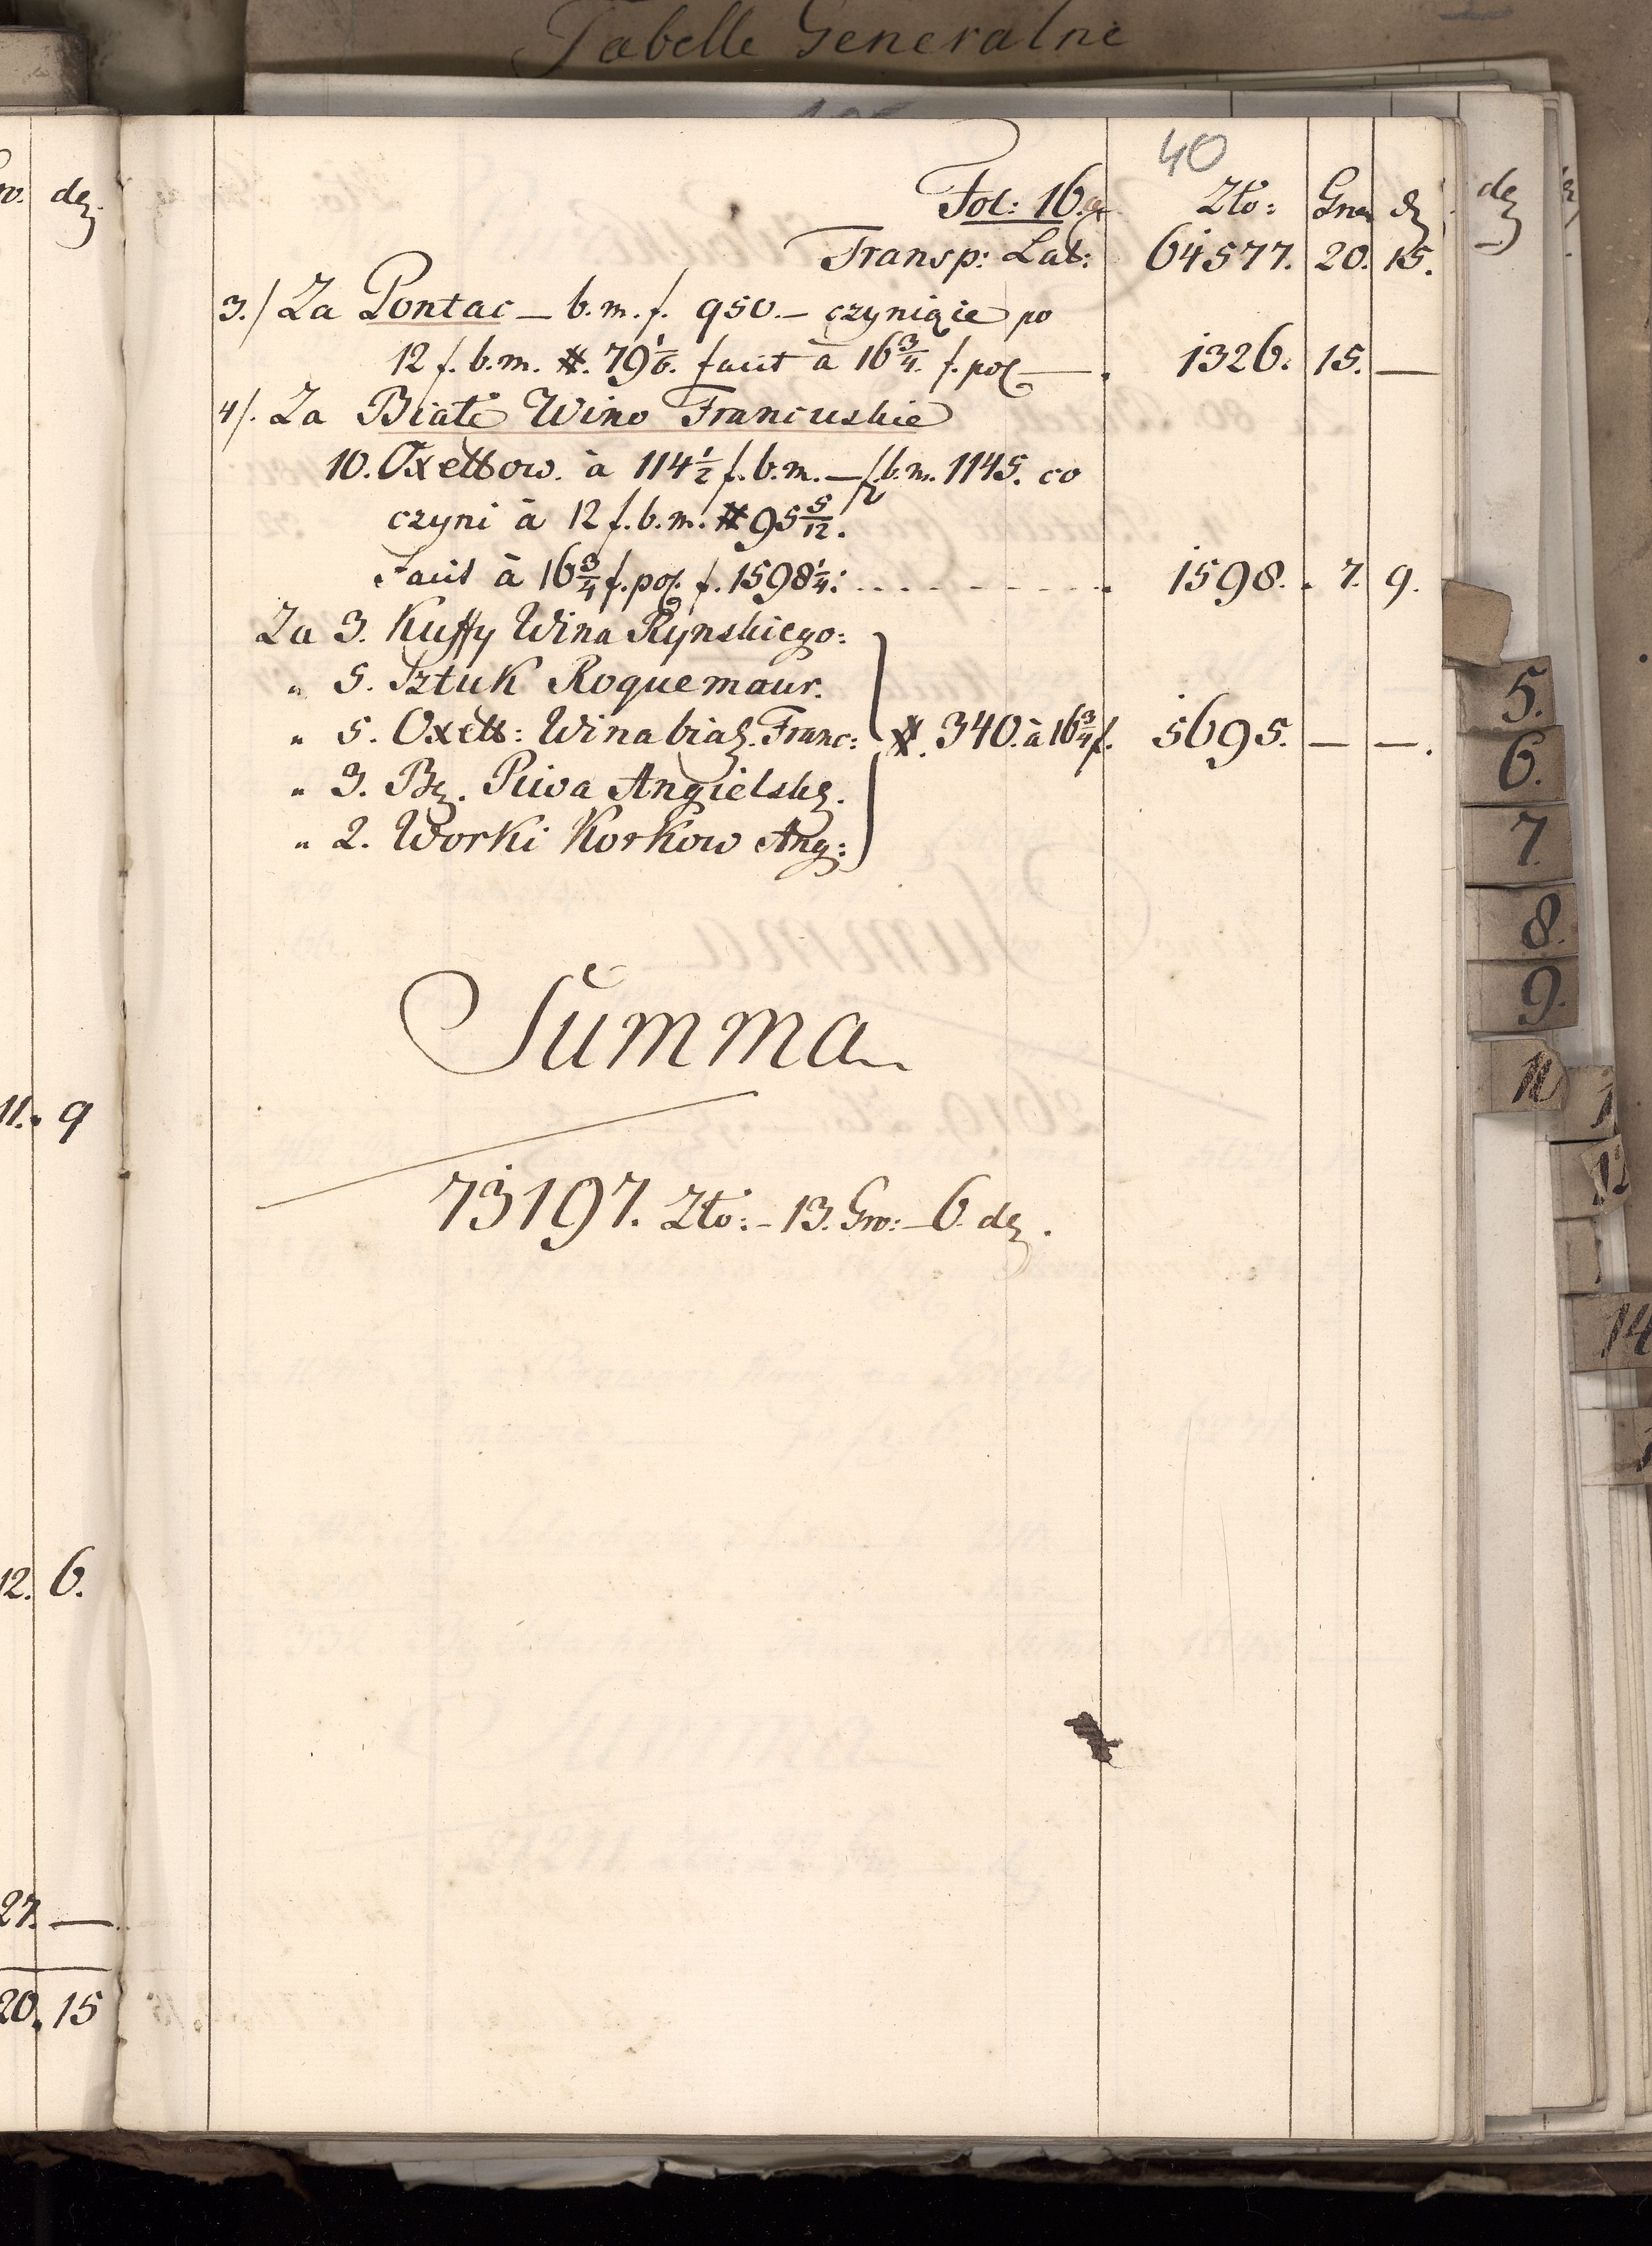 Tabelle Generalne
40
Fol: 16. Zło: Gro dz
Transp: Lat: 64577. 20. 15.
3./ Za Pontac — b.m.f. 950. — czyniące po
12 f. b.m. #. 79 1/6. facit à 16 3/4. f. pol — . 1326. 15. —
4/. Za Białe Wino Francuskie
10. Oxettow. à 114 1/2 f. b.m. — f. b.m. 1145. co
czyni à 12 f. b.m. # 95 5/12.
Facit à 16 3/4 f. pol. f. 1598 1/4: . . . . . . . . . 1598. . 7. 9.
Za 3. Kuffy Wina Rynskiego:
" 5. Sztuk Roquemaur.
" 5. Oxett: Wina biał. Franc: #. 340. à 16 3/4 f. 5695. — — .
" 3. Bcz. Piwa Angielskg.
" 2. Worki Korkow Ang:
Summa
73197. Zło: - 13. Gro: - 6. dz.
dz.
11. 9
12. 6.
27. —
20. 15
dz
5.
6.
7.
8.
9.
14